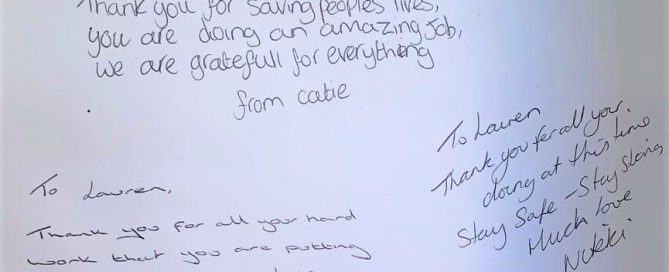 Thank you for saving peoples lives,
you are doing an amazing job,
we are gratefull for everything
from catie
To Lauren
Thank you for all your
doing at this time
Stay Safe - Stay Strong
Much love
Nikki
To Lauren,
Thank you for all your hard
work that you are putting